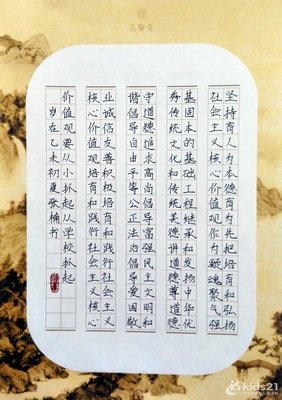 坚持育人为本德育为先把培育和弘扬
社会主义核心价值观作为凝魂聚气强
基固本的基础工程继承和发扬中华优
秀传统文化和传统美德讲道德尊道德
守道德追求高尚倡导富强民主文明和
谐倡导自由平等公正法治倡导爱国敬
业诚信友善积极培育和践行社会主义
核心价值观培育和践行社会主义核心
价值观要从小抓起从学校抓起
岁在乙未初夏张楠书
kids21